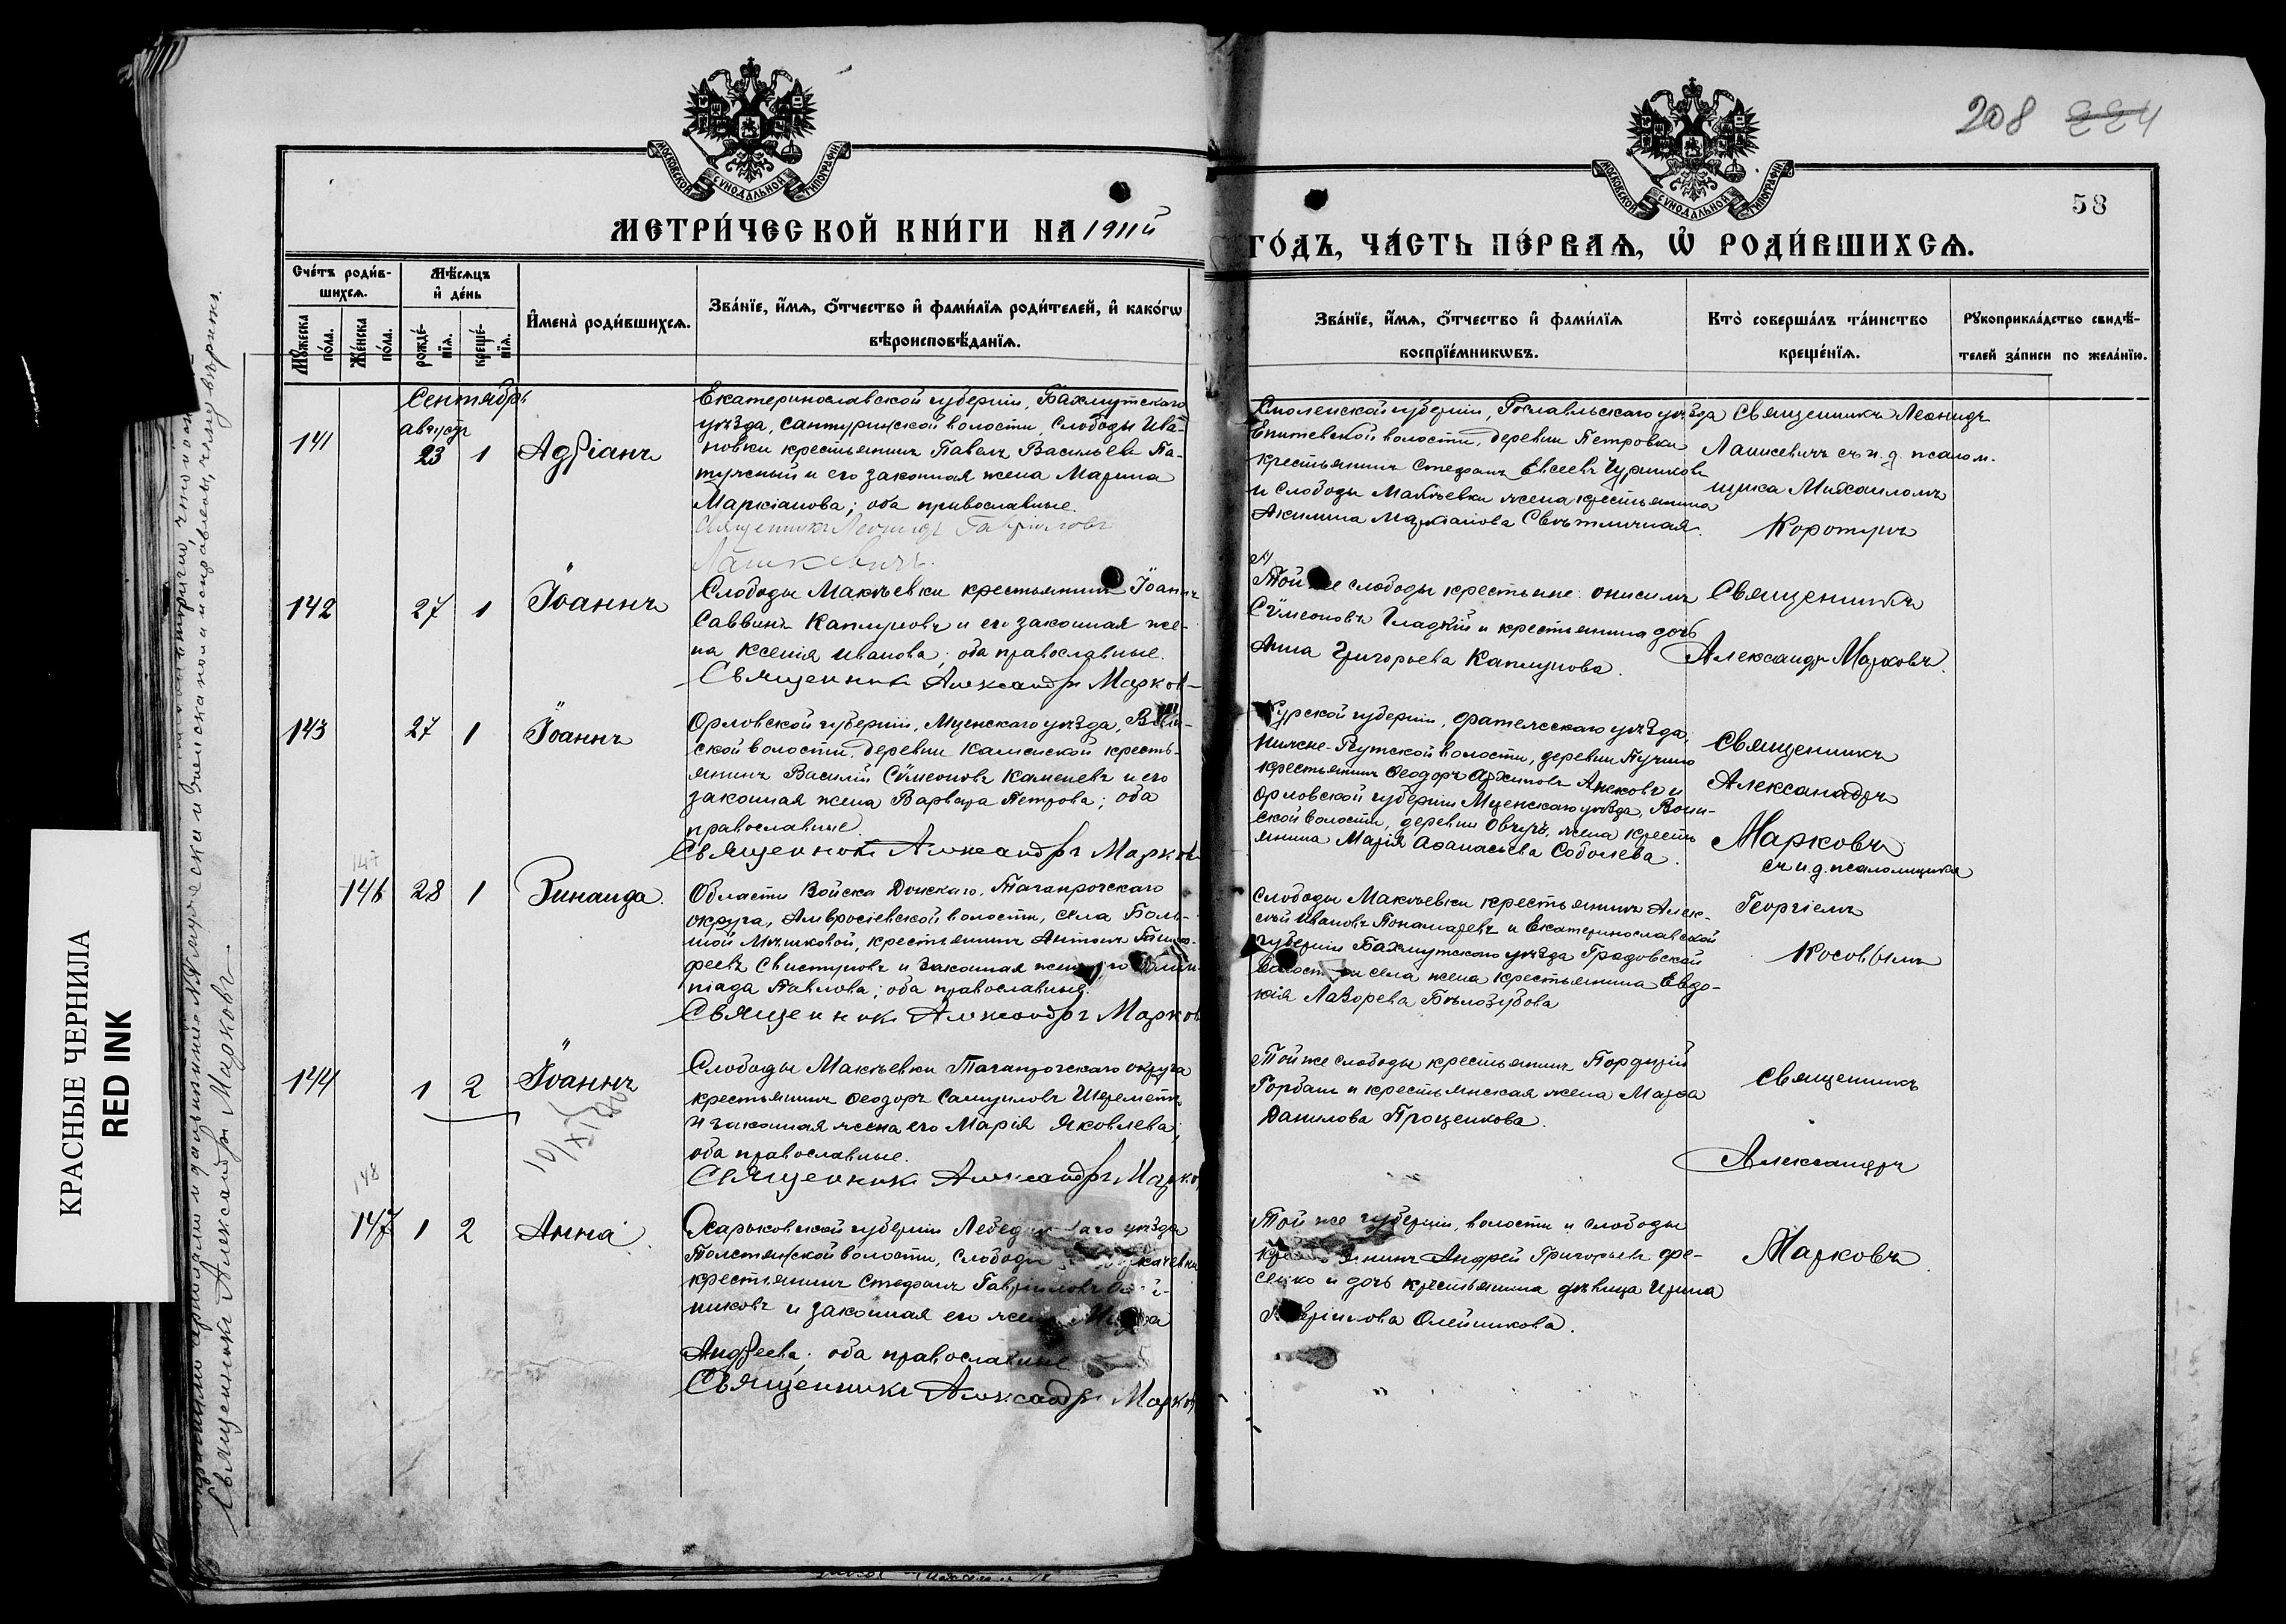 208 224
58
МОСКОВСКОЙ СѴНОДАЛЬНОЙ ТИПОГРАФІИ
МОСКОВСКОЙ СѴНОДАЛЬНОЙ ТИПОГРАФІИ
МЕТРИ́ЧЕСКОЙ КНИ́ГИ НА 1911й
ГО́ДЪ, ЧА́СТЬ ПЕ́РВАѦ, Ѽ РОДИ́ВШИХСѦ.
Сче́тъ роди́в-
шихсѧ.
Мꙋ́жеска по́ла.
Же́нска по́ла.
Мѣ́сѧцъ
и҆ де́нь
рожде́-
нїѧ.
креще́-
нїѧ.
И҆мена̀ роди́вшихсѧ.
Зва́нїе, и҆́мѧ, ѻ҆́тчество и҆ фами́лїѧ роди́телей, и҆ како́гѡ
вѣроисповѣ́данїѧ.
Зва́нїе, и҆́мѧ, ѻ҆́тчество и҆ фами́лїѧ
воспрїе́мникѡвъ.
Кто̀ соверша́лъ та́инство
креще́нїѧ.
Рꙋкоприкла́дство свидѣ́-
телей за́писи по жела́нїю.
Сентябрь
август
141
23
1
Адріанъ
Екатеринославской губерніи, Бахмутскаго
уѣзда, Сантуринской волости, Слободы Ива-
новки крестьянинъ Павелъ Васильевъ Па-
и его законная жена Марина
Маркіанова; оба православные.
Священникъ Леонидъ Гавриловъ
Лашкевичъ.
Смоленской губерніи, Рославльскаго уѣзда
волости, деревни Петровки
крестьянинъ Стефанъ Евсеевъ
и слободы Макѣевки жена крестьянина
Акилина Маркіанова Свѣтличная.
Священникъ Леонидъ
Лашкевичъ съ и. д. псалом-
щика Михаиломъ
142
27
1
Іоаннъ
Слободы Макѣевки крестьянинъ Іоаннъ
Саввинъ Каплуновъ и его законная же-
на Ксенія Иванова; оба православные.
Священникъ Александръ Марковъ
Той же слободы крестьяне: Онисимъ
Сѵмеоновъ Гладкій и крестьянина дочь
Анна Григорьева Каплунова.
Священникъ
Александръ Марковъ.
143
27
1
Іоаннъ
Орловской губерніи, Мценскаго уѣзда,
ской волости, деревни Каменской кресть-
янинъ Василій Сѵмеоновъ Каменевъ и его
законная жена Варвара Петрова; оба
православные.
Священникъ Александръ Марковъ
Курской губерніи, Фатежскаго уѣзда,
Нижне-Реутской волости, деревни
крестьянинъ Ѳеодоръ Архиповъ и
Орловской губерніи Мценскаго уѣзда,
ской волости, деревни жена кресть-
янина Марія Аѳанасьева Соболева.
Священникъ
Александръ
Марковъ
съ и. д. псаломщика
147
146
28
1
Зинаида.
Области Войска Донскаго, Таганрогскаго
округа, Амвросіевской волости, села Боль-
шой Мѣшковой, крестьянинъ Антонъ
феевъ Свистуновъ и законная жена его Олим-
піада Павлова; оба православные.
Священникъ Александръ Марковъ
Слободы Макѣевки крестьянинъ Алек-
сѣй Ивановъ Понамаревъ и Екатеринославской
губерніи Бахмутскаго уѣзда Градовской
волости и села жена крестьянина Евдо-
кія Лазорева Бѣлозубова
Георгіемъ
Косовымъ
144
1
2
Іоаннъ
Слободы Макѣевки Таганрогскаго округа
крестьянинъ Ѳеодоръ Самуиловъ Шереметъ
и законная жена его Марія Яковлева;
оба православные.
Священникъ Александръ Марковъ
Той же слободы крестьянинъ Порфирій
Горбань и крестьянская жена Марѳа
Данилова Проценкова.
Священникъ
Александръ
148
147
1
2
Анна
Харьковской губерніи уѣзда
Толстянской волости, Слободы
крестьянинъ Стефанъ Гавриловъ
никовъ и законная его жена
Андреева; оба православные
Священникъ Александръ Марковъ
Той же губерніи, волости и слободы
крестьянинъ Андрей Григорьевъ Фе-
сенко и дочь крестьянина дѣвица Ирина
Гавріилова Олейникова.
Марковъ
Священникъ Александръ Марковъ
КРАСНЫЕ ЧЕРНИЛА
RED INK